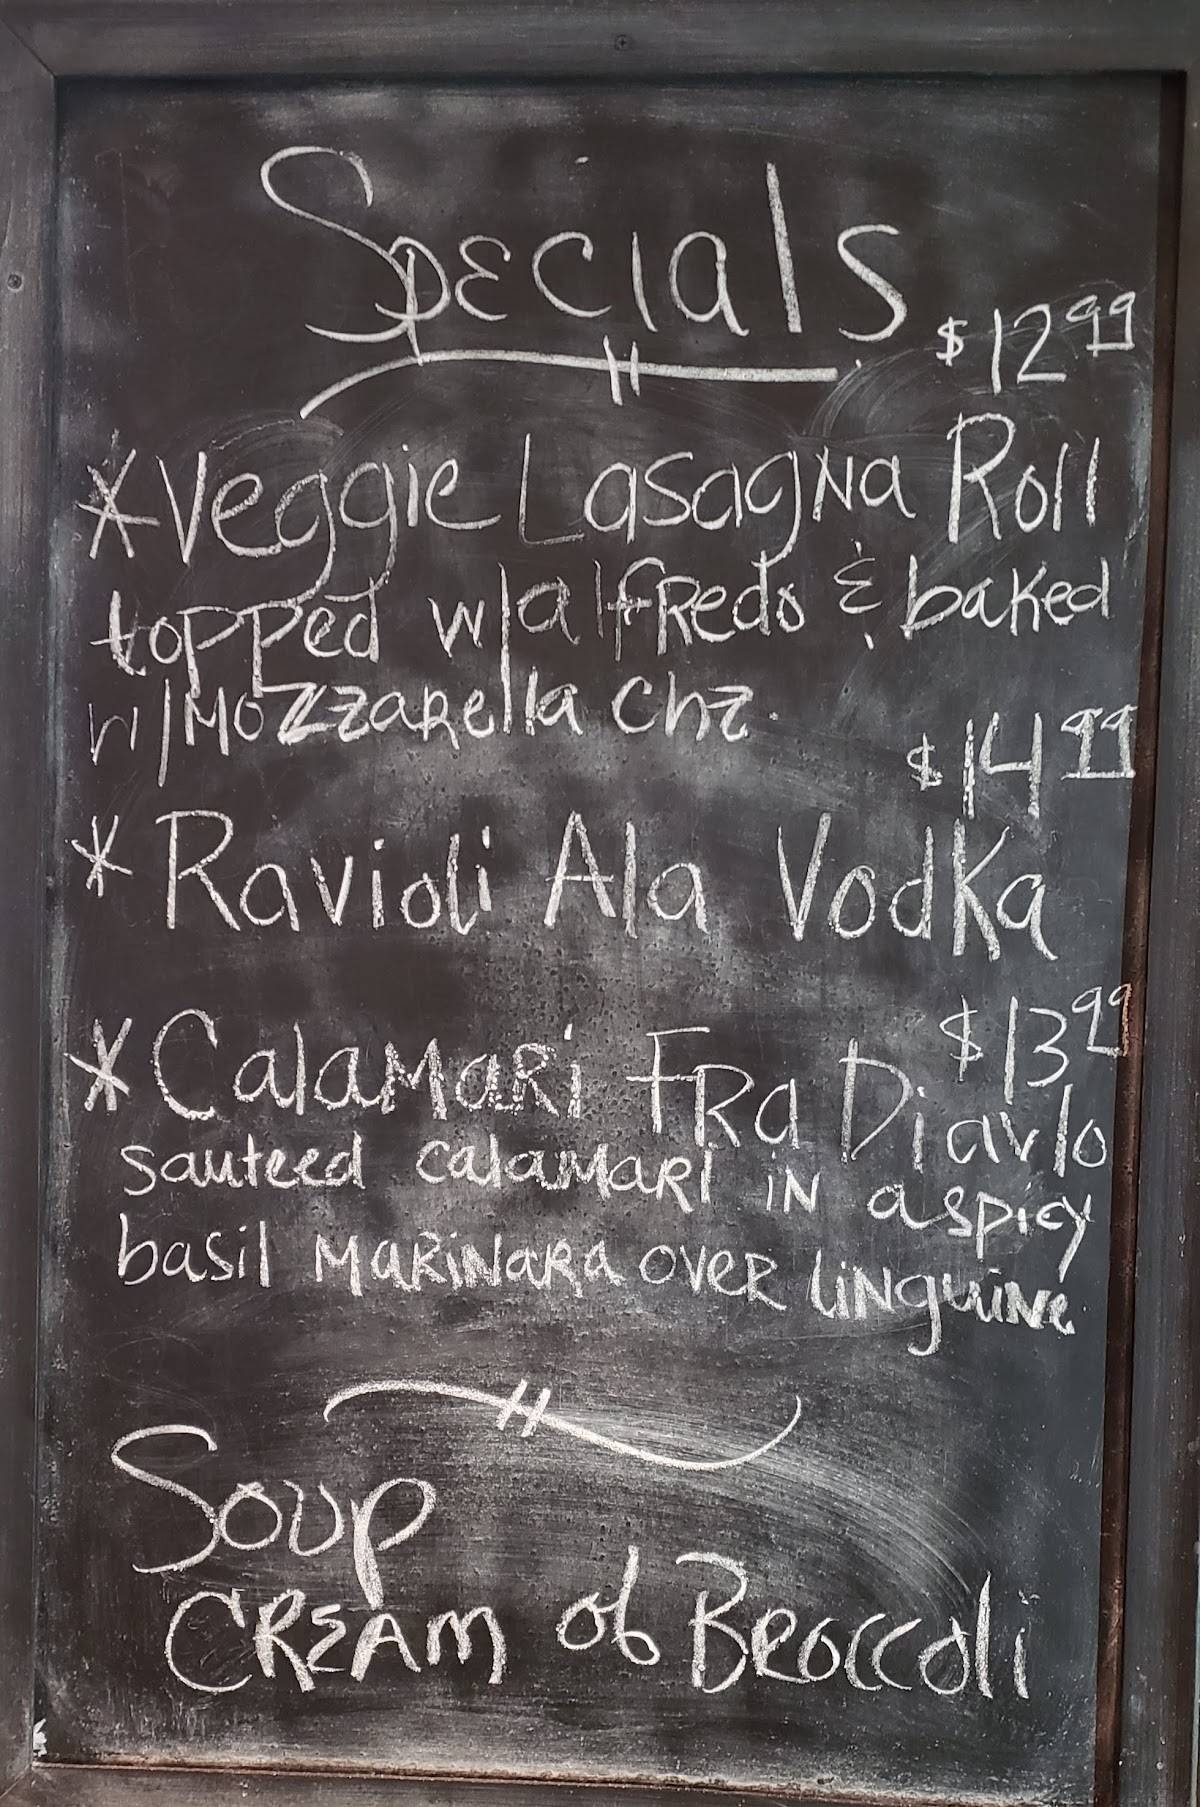 Specials
$12 99
*Veggie Lasagna Roll
topped w/alfredo & baked
w/Mozzarella chz.
$14 99
* Ravioli Ala Vodka
$13 99
*Calamari Fra Diavlo
sauteed calamari in a spicy
basil marinara over linguine
Soup
Cream of Broccoli